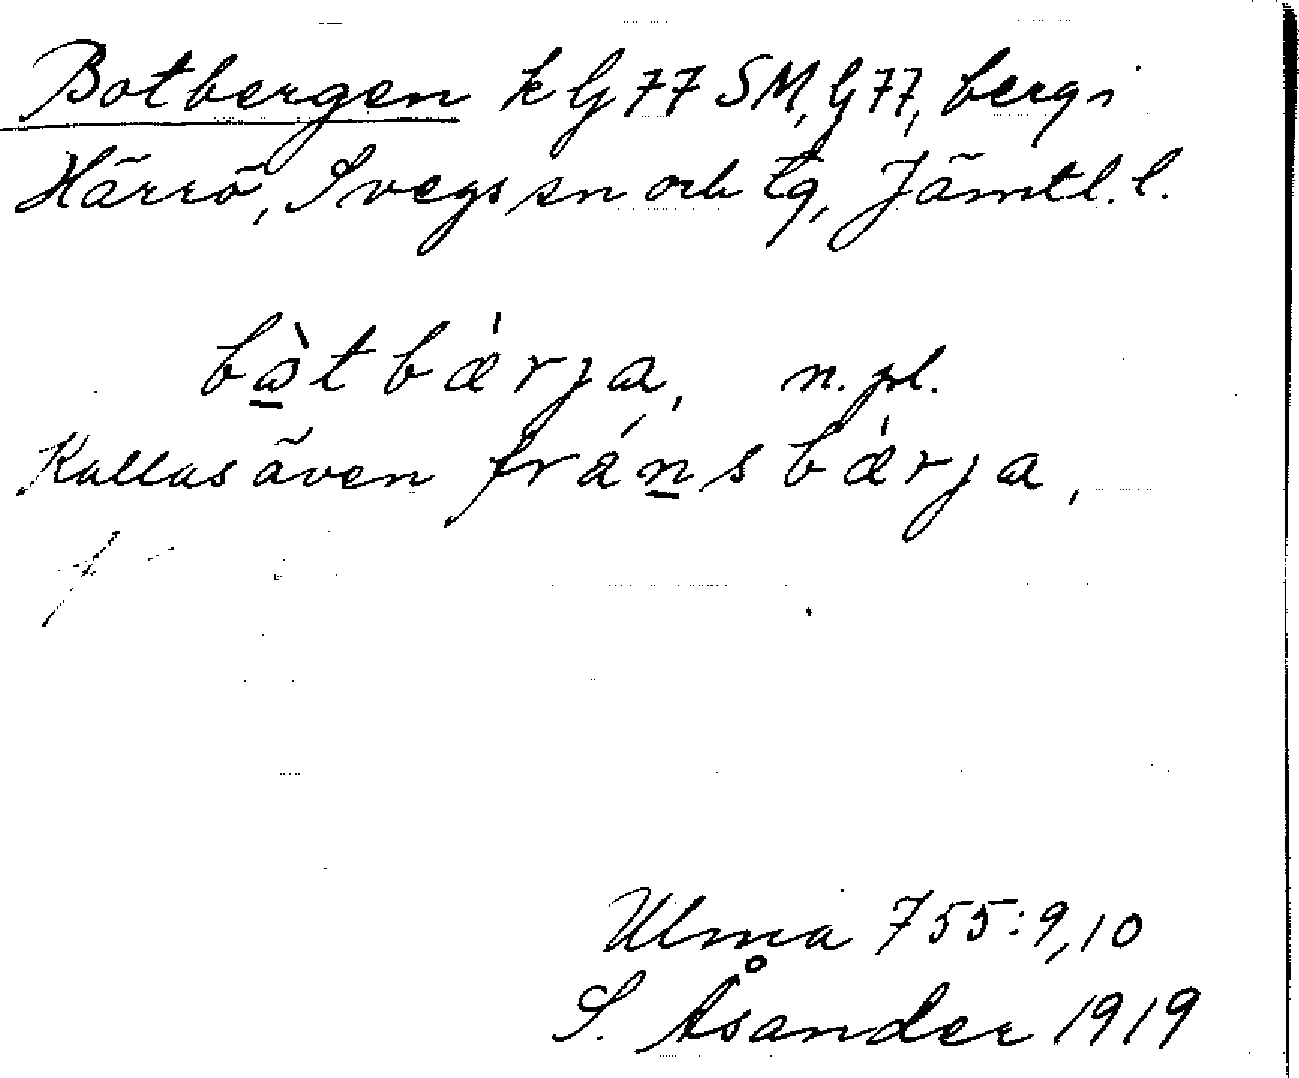 Botbergen k G77 SM, G77, berg i
Härrö, Svegs sn och tg, Jämtl. l.
bà̱tbǽrja, n. pl.
Kallas även fráṉsbǽrja,
Ulma 755:9,10
S. Åsander 1919